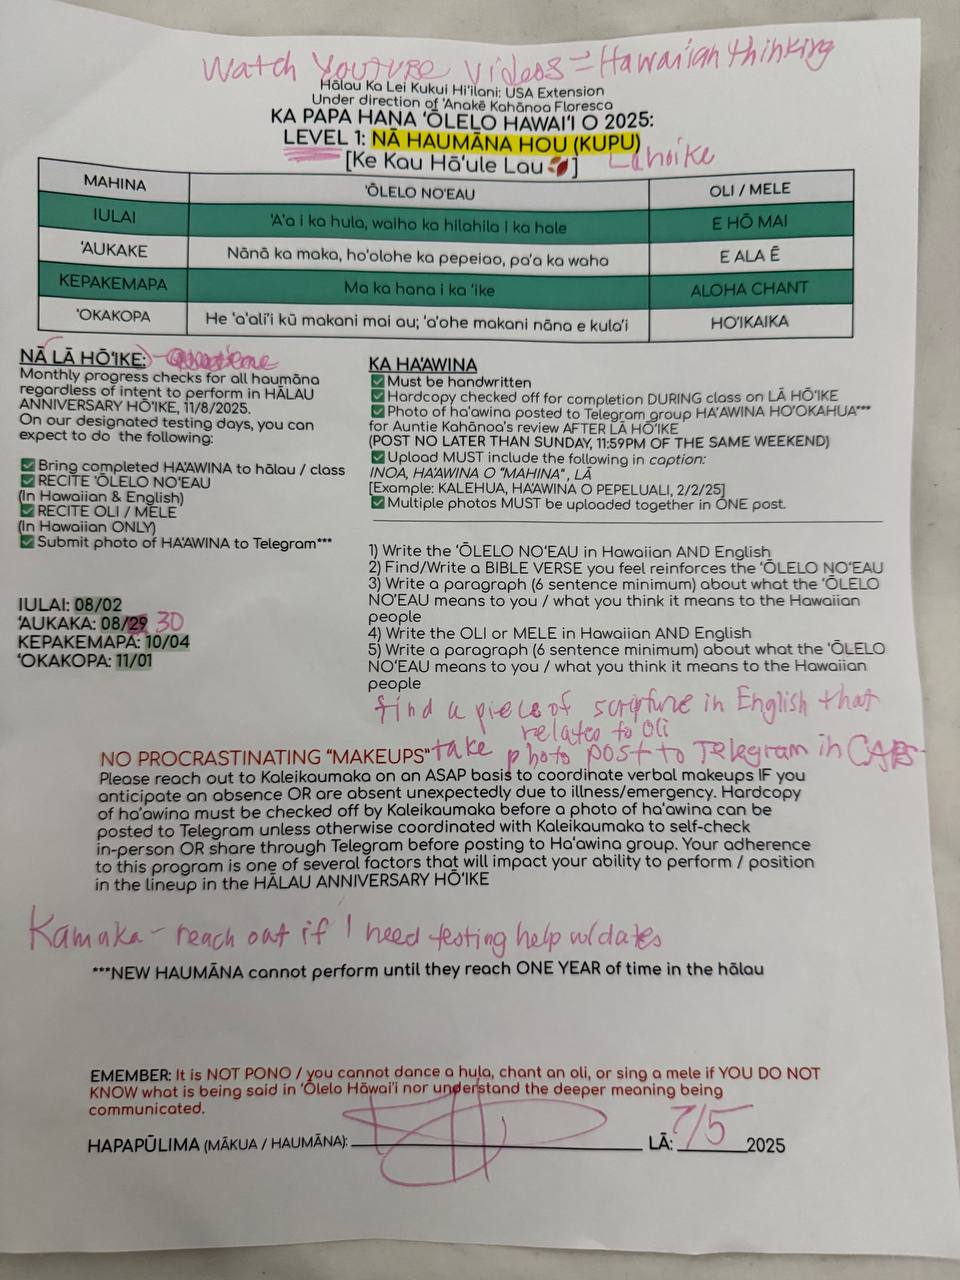 Watch YouTube Videos = Hawaiian thinking
Hālau Ka Lei Kukui Hi'ilani: USA Extension
Under direction of 'Anakē Kahānoa Floresca
KA PAPA HANA 'ŌLELO HAWAI'I O 2025:
LEVEL 1: NĀ HAUMĀNA HOU (KUPU)
[Ke Kau Hā'ule Lau🍂]
Lahoike
MAHINA 'ŌLELO NO'EAU OLI / MELE
IULAI 'A'a i ka hula, waiho ka hilahila i ka hale E HŌ MAI
'AUKAKE Nānā ka maka, ho'olohe ka pepeiao, pa'a ka waha E ALA Ē
KEPAKEMAPA Ma ka hana i ka 'ike ALOHA CHANT
'OKAKOPA He 'a'ali'i kū makani mai au; 'a'ohe makani nāna e kula'i HO'IKAIKA
NĀ LĀ HŌ'IKE:
Monthly progress checks for all haumāna
regardless of intent to perform in HĀLAU
ANNIVERSARY HŌ'IKE, 11/8/2025.
On our designated testing days, you can
expect to do the following:
✅ Bring completed HA'AWINA to hālau / class
✅ RECITE 'ŌLELO NO'EAU
(In Hawaiian & English)
✅ RECITE OLI / MELE
(In Hawaiian ONLY)
✅ Submit photo of HA'AWINA to Telegram***
IULAI: 08/02
'AUKAKA: 08/29 30
KEPAKEMAPA: 10/04
'OKAKOPA: 11/01
KA HA'AWINA
✅ Must be handwritten
✅ Hardcopy checked off for completion DURING class on LĀ HŌ'IKE
✅ Photo of ha'awina posted to Telegram group HA'AWINA HO'OKAHUA***
for Auntie Kahānoa's review AFTER LĀ HŌ'IKE
(POST NO LATER THAN SUNDAY, 11:59PM OF THE SAME WEEKEND)
✅ Upload MUST include the following in caption:
INOA, HA'AWINA O "MAHINA", LĀ
[Example: KALEHUA, HA'AWINA O PEPELUALI, 2/2/25]
✅ Multiple photos MUST be uploaded together in ONE post.
1) Write the 'ŌLELO NO'EAU in Hawaiian AND English
2) Find/Write a BIBLE VERSE you feel reinforces the 'ŌLELO NO'EAU
3) Write a paragraph (6 sentence minimum) about what the 'ŌLELO
NO'EAU means to you / what you think it means to the Hawaiian
people
4) Write the OLI or MELE in Hawaiian AND English
5) Write a paragraph (6 sentence minimum) about what the 'ŌLELO
NO'EAU means to you / what you think it means to the Hawaiian
people
find a piece of scripture in English that
relates to Oli
take photo post to Telegram in CAPS
NO PROCRASTINATING "MAKEUPS"
Please reach out to Kaleikaumaka on an ASAP basis to coordinate verbal makeups IF you
anticipate an absence OR are absent unexpectedly due to illness/emergency. Hardcopy
of ha'awina must be checked off by Kaleikaumaka before a photo of ha'awina can be
posted to Telegram unless otherwise coordinated with Kaleikaumaka to self-check
in-person OR share through Telegram before posting to Ha'awina group. Your adherence
to this program is one of several factors that will impact your ability to perform / position
in the lineup in the HĀLAU ANNIVERSARY HŌ'IKE
Kamaka - reach out if I need testing help w/dates
***NEW HAUMĀNA cannot perform until they reach ONE YEAR of time in the hālau
EMEMBER: It is NOT PONO / you cannot dance a hula, chant an oli, or sing a mele if YOU DO NOT
KNOW what is being said in 'Ōlelo Hāwai'i nor understand the deeper meaning being
communicated.
HAPAPŪLIMA (MĀKUA / HAUMĀNA): LĀ: 7/5 2025